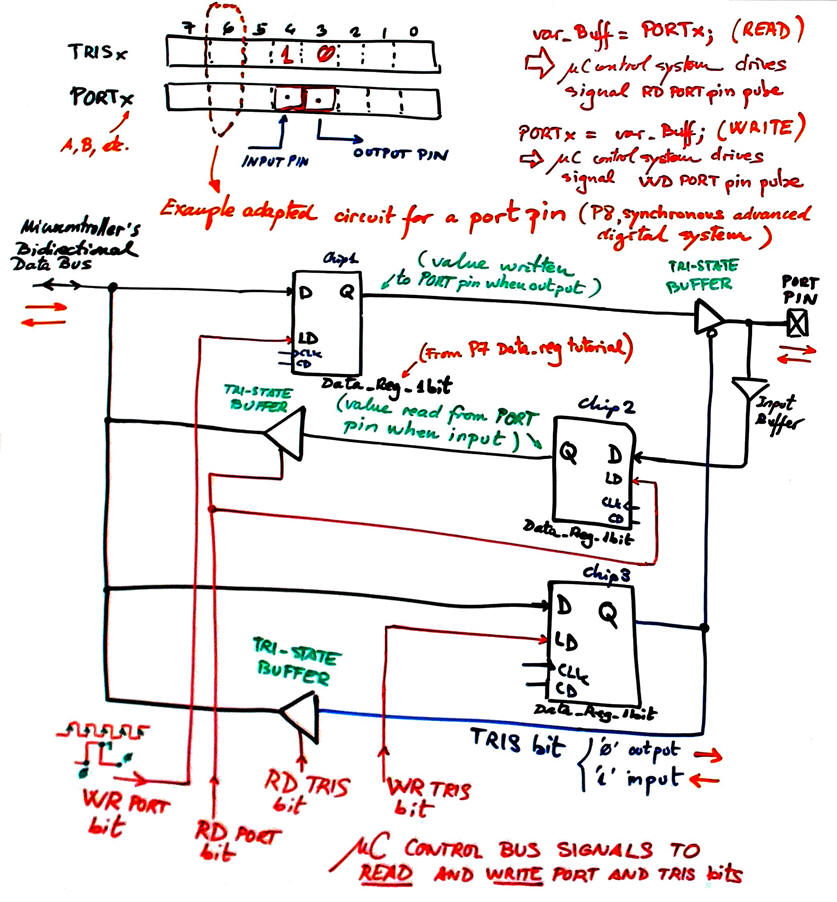 7 6 5 4 3 2 1 0
TRISx 1 0
PORTx
A, B, etc.
INPUT PIN
OUTPUT PIN
var_Buff = PORTx; (READ)
⇨ µControl system drives
signal RD PORT pin pulse
PORTx = var_Buff; (WRITE)
⇨ µC control system drives
signal WD PORT pin pulse
Example adapted circuit for a port pin (P8, synchronous advanced
digital system)
Bidirectional
Data Bus
Chip1
D Q
LD
CLK
CD
Data_Reg_1bit
(value written
to PORT pin when output)
(From P7 Data_reg tutorial)
TRI-STATE
BUFFER
PORT
PIN
Input
Buffer
TRI-STATE
BUFFER
(value read from PORT
pin when input)
Chip2
Q D
LD
CLK
CD
Data_Reg_1bit
Chip3
D Q
LD
CLK
CD
Data_Reg_1bit
TRI-STATE
BUFFER
TRIS bit
'0' output
'1' input
0 1 0
WR PORT
bit
RD PORT
bit
RD TRIS
bit
WR TRIS
bit
µC CONTROL BUS SIGNALS TO
READ AND WRITE PORT AND TRIS bits